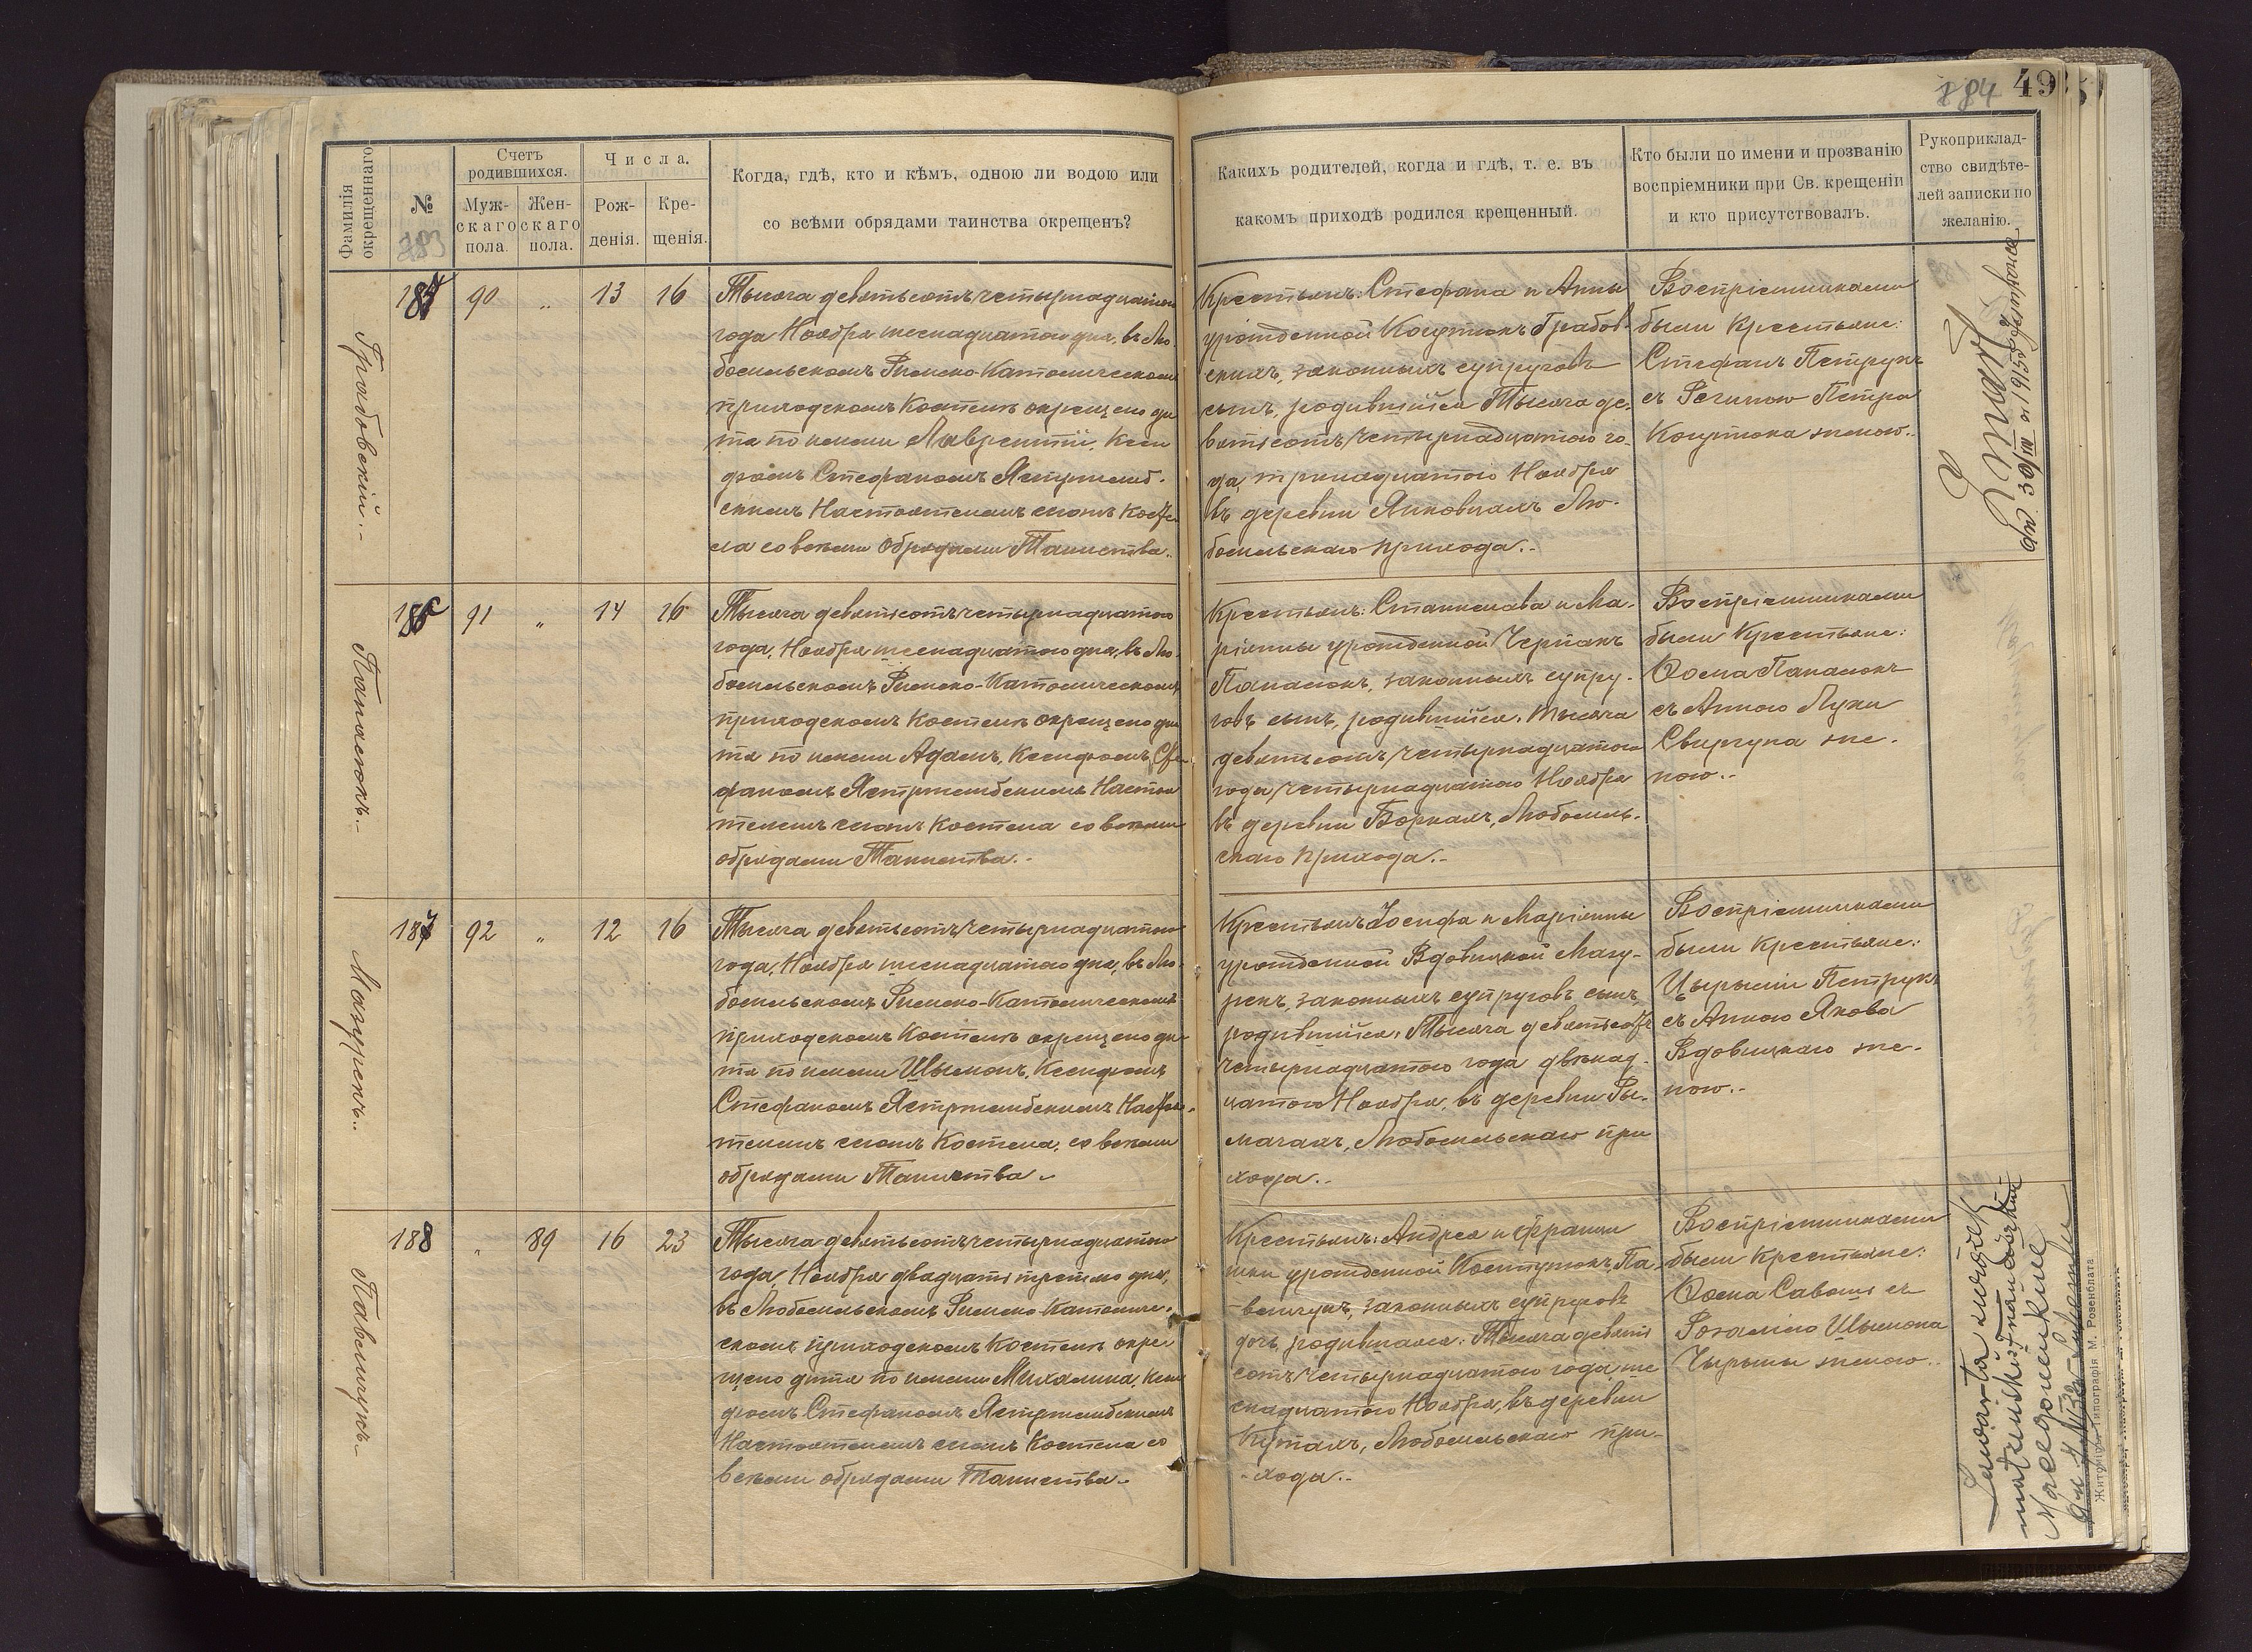 184 49
Фамилія окрещеннаго
№
183
Счетъ родившихся.
Муж-скаго пола.
Жен-скаго пола.
Числа.
Рож-денія.
Кре-щенія.
Когда, гдѣ, кто и кѣмъ, одною ли водою или
со всѣми обрядами таинства окрещенъ?
Какихъ родителей, когда и гдѣ, т. е. въ
какомъ приходѣ родился крещенный.
Кто были по имени и прозванію
воспріемники при Св. крещеніи
и кто присутствовалъ.
Рукоприклад-
ство свидѣте-
лей записки по
желанію.
Грабовскій.
90 „ 13 16
Тысяча девятьсотъ четырнадцатаго
года Ноября шеснадцатаго дня, въ Лю-
бомльскомъ Римско-Католическомъ
приходскомъ Костелѣ окрещено ди
тя по имени Лаврентій, Ксен
дзомъ Стефаномъ Ястржемб-
скимъ Настоятелемъ сего Косте
ла со всѣми Обрядами Таинства.
Крестьянъ: Стефана и Анны
урожденной Коцюмонъ Грабов-
скихъ, законныхъ супруговъ
сынъ, родившійся Тысяча де-
вятьсотъ четырнадцатаго го-
да, тринадцатаго Ноября
въ деревни Янковцахъ Лю-
бомльскаго прихода.
Воспріемниками
были Крестьяне:
Стефанъ Петрукъ
съ Региною Петра
женою.
Zmarł
Папаюкъ.
186 91 „ 14 16
Тысяча девятьсотъ четырнадцатаго
года, Ноября шеснадцатаго дня, въ Лю-
бомльскомъ Римско-Католическомъ
приходскомъ Костелѣ окрещено ди
тя по имени Адамъ, Ксендзомъ Сте
фаномъ Ястржембскимъ Настоя
телемъ сего Костела со всѣми
обрядами Таинства.
Крестьянъ: Станислава и Ма-
ріанны урожденной Черпакъ
законныхъ супру-
говъ сынъ, родившійся. Тысяча
девятьсотъ четырнадцатаго
года четырнадцатаго Ноября
въ деревни Боркахъ, Любомль-
скаго Прихода.
Воспріемниками
были Крестьяне:
Ѳома
съ Анною Луки
же-
ною.
Мазурекъ.
187 92 „ 12 16
Тысяча девятьсотъ четырнадцатаго
года, Ноября шеснадцатаго дня, въ Лю-
бомльскомъ Римско-Католическомъ
приходскомъ Костелѣ окрещено ди-
тя по имени Шымонъ, Ксендзомъ
Стефаномъ Ястржембскимъ Настоя-
телемъ сего Костела, со всѣми
обрядами Таинства.
Крестьянъ Іосифа и Маріанны
урожденной Вдовицкой Мазу-
рекъ, законныхъ супруговъ сынъ,
родившійся: Тысяча девятьсотъ
четырнадцатаго года двѣнад-
цатаго Ноября, въ деревни Ры-
мачахъ, Любомльскаго при
хода.
Воспріемниками
были Крестьяне:
Петрукъ
съ Анною Якова
Вдовицкаго же-
ною.
Павельчукъ.
188 „ 89 16 23
Тысяча девятьсотъ четырнадцатаго
года, Ноября двадцать третьяго дня,
въ Любомльскомъ Римско-Католиче-
скомъ приходскомъ Костелѣ окре
щено дитя по имени Михалина, Ксен
дзомъ Стефаномъ Ястржембскимъ
Настоятелемъ сего Костела со
всѣми обрядами Таинства.
Крестьянъ: Андрея и Францы
шки урожденной Костюкъ, Па-
вельчукъ, законныхъ супруговъ
дочь, родившаяся: Тысяча девять
сотъ четырнадцатаго года ше
снадцатаго Ноября, въ деревни
Кутахъ, Любомльскаго при-
хода.
Воспріемниками
были Крестьяне:
Ѳома Саваш съ
Розалiею Шымона
женою.
Zawarta związek
małżeński z Franciszkiem
Житомiръ Типографія М. Розенблата